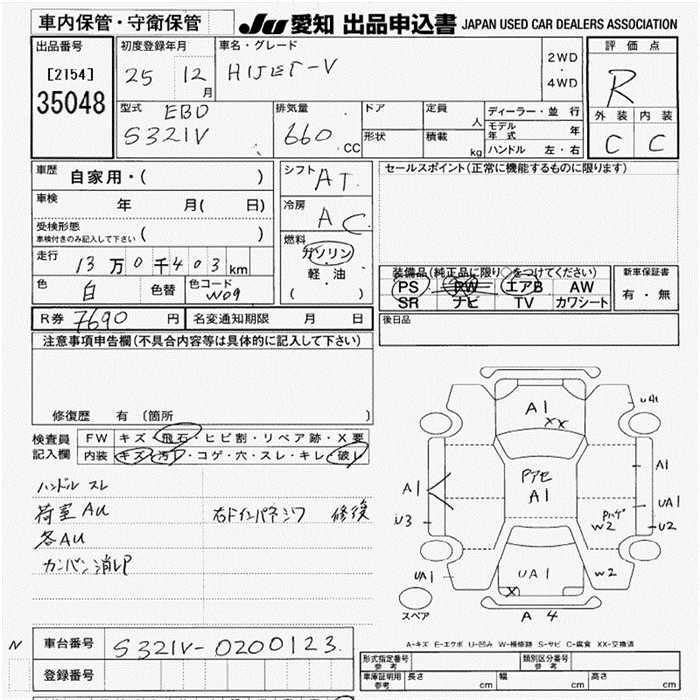 車内保管・守衛保管
JU 愛知 出品申込書 JAPAN USED CAR DEALERS ASSOCIATION
出品番号
[2154]
35048
初度登録年月
25 12月
車名・グレード
HIJET-V
2WD
・
4WD
評価点
R
外装 内装
C C
型式
EBD
S321V
排気量
660 .CC
ドア
形状
定員 人
積載 kg
ディーラー・並行
モデル年式 年
ハンドル 左・右
車歴 自家用・( )
車検 年 月( 日)
受検形態
車検付きのみ記入して下さい ( )
走行 13万0千403km
色 白 色替 色コード W09
シフト AT
冷房 AC
燃料
ガソリン
・
軽油
( )
セールスポイント(正常に機能するものに限ります)
装備品(純正品に限り○をつけてください)
PS PW エアB AW
SR ナビ TV カワシート
新車保証書
有・無
R券 7690 円 名変通知期限 月 日
後日品
注意事項申告欄(不具合内容等は具体的に記入して下さい)
修復歴 有 (箇所 )
検査員記入欄
FW キズ・飛石・ヒビ割・リペア跡・X要
内装 キズ・汚レ・コゲ・穴・スレ・キレ・破レ
ハンドル スレ
荷室AU 右Fインパネシワ 修復
各AU
カンバン消レP
A1
XX
U41
A1
Pアセ
A1
A1
UA1
U3
Pハゲ
W2
U2
UA1
UA1
X
W2
スペア
A 4
A-キズ E-エクボ U-凹み W-補修跡 S-サビ C-腐食 XX-交換済
N
車台番号 S321V-0200123.
登録番号
形式指定番号
参考
類別区分番号
参考
車庫証明用
参考
長さ cm 幅 cm 高さ cm